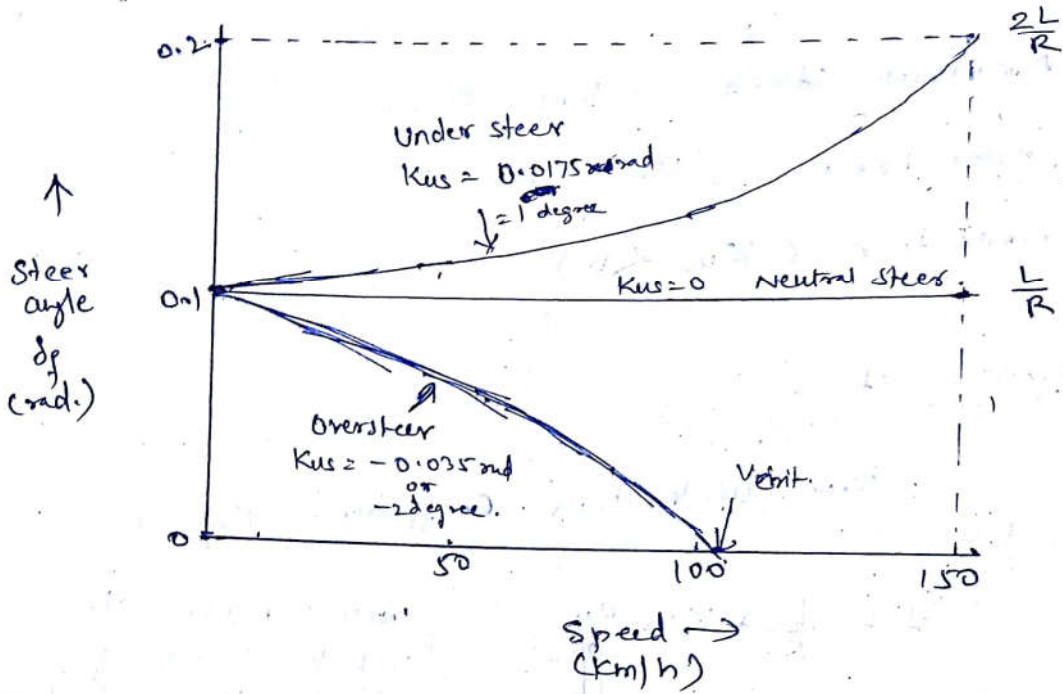 0.2
2L/R
Under steer
Kus = 0.0175 rad
or
= 1 degree
↑
Steer
angle
δf
(rad.)
0.1
Kus=0 Neutral Steer.
L/R
Oversteer
Kus = -0.035 rad
or
-2 degree).
Vcrit.
0
50
100
150
Speed →
(km/h)